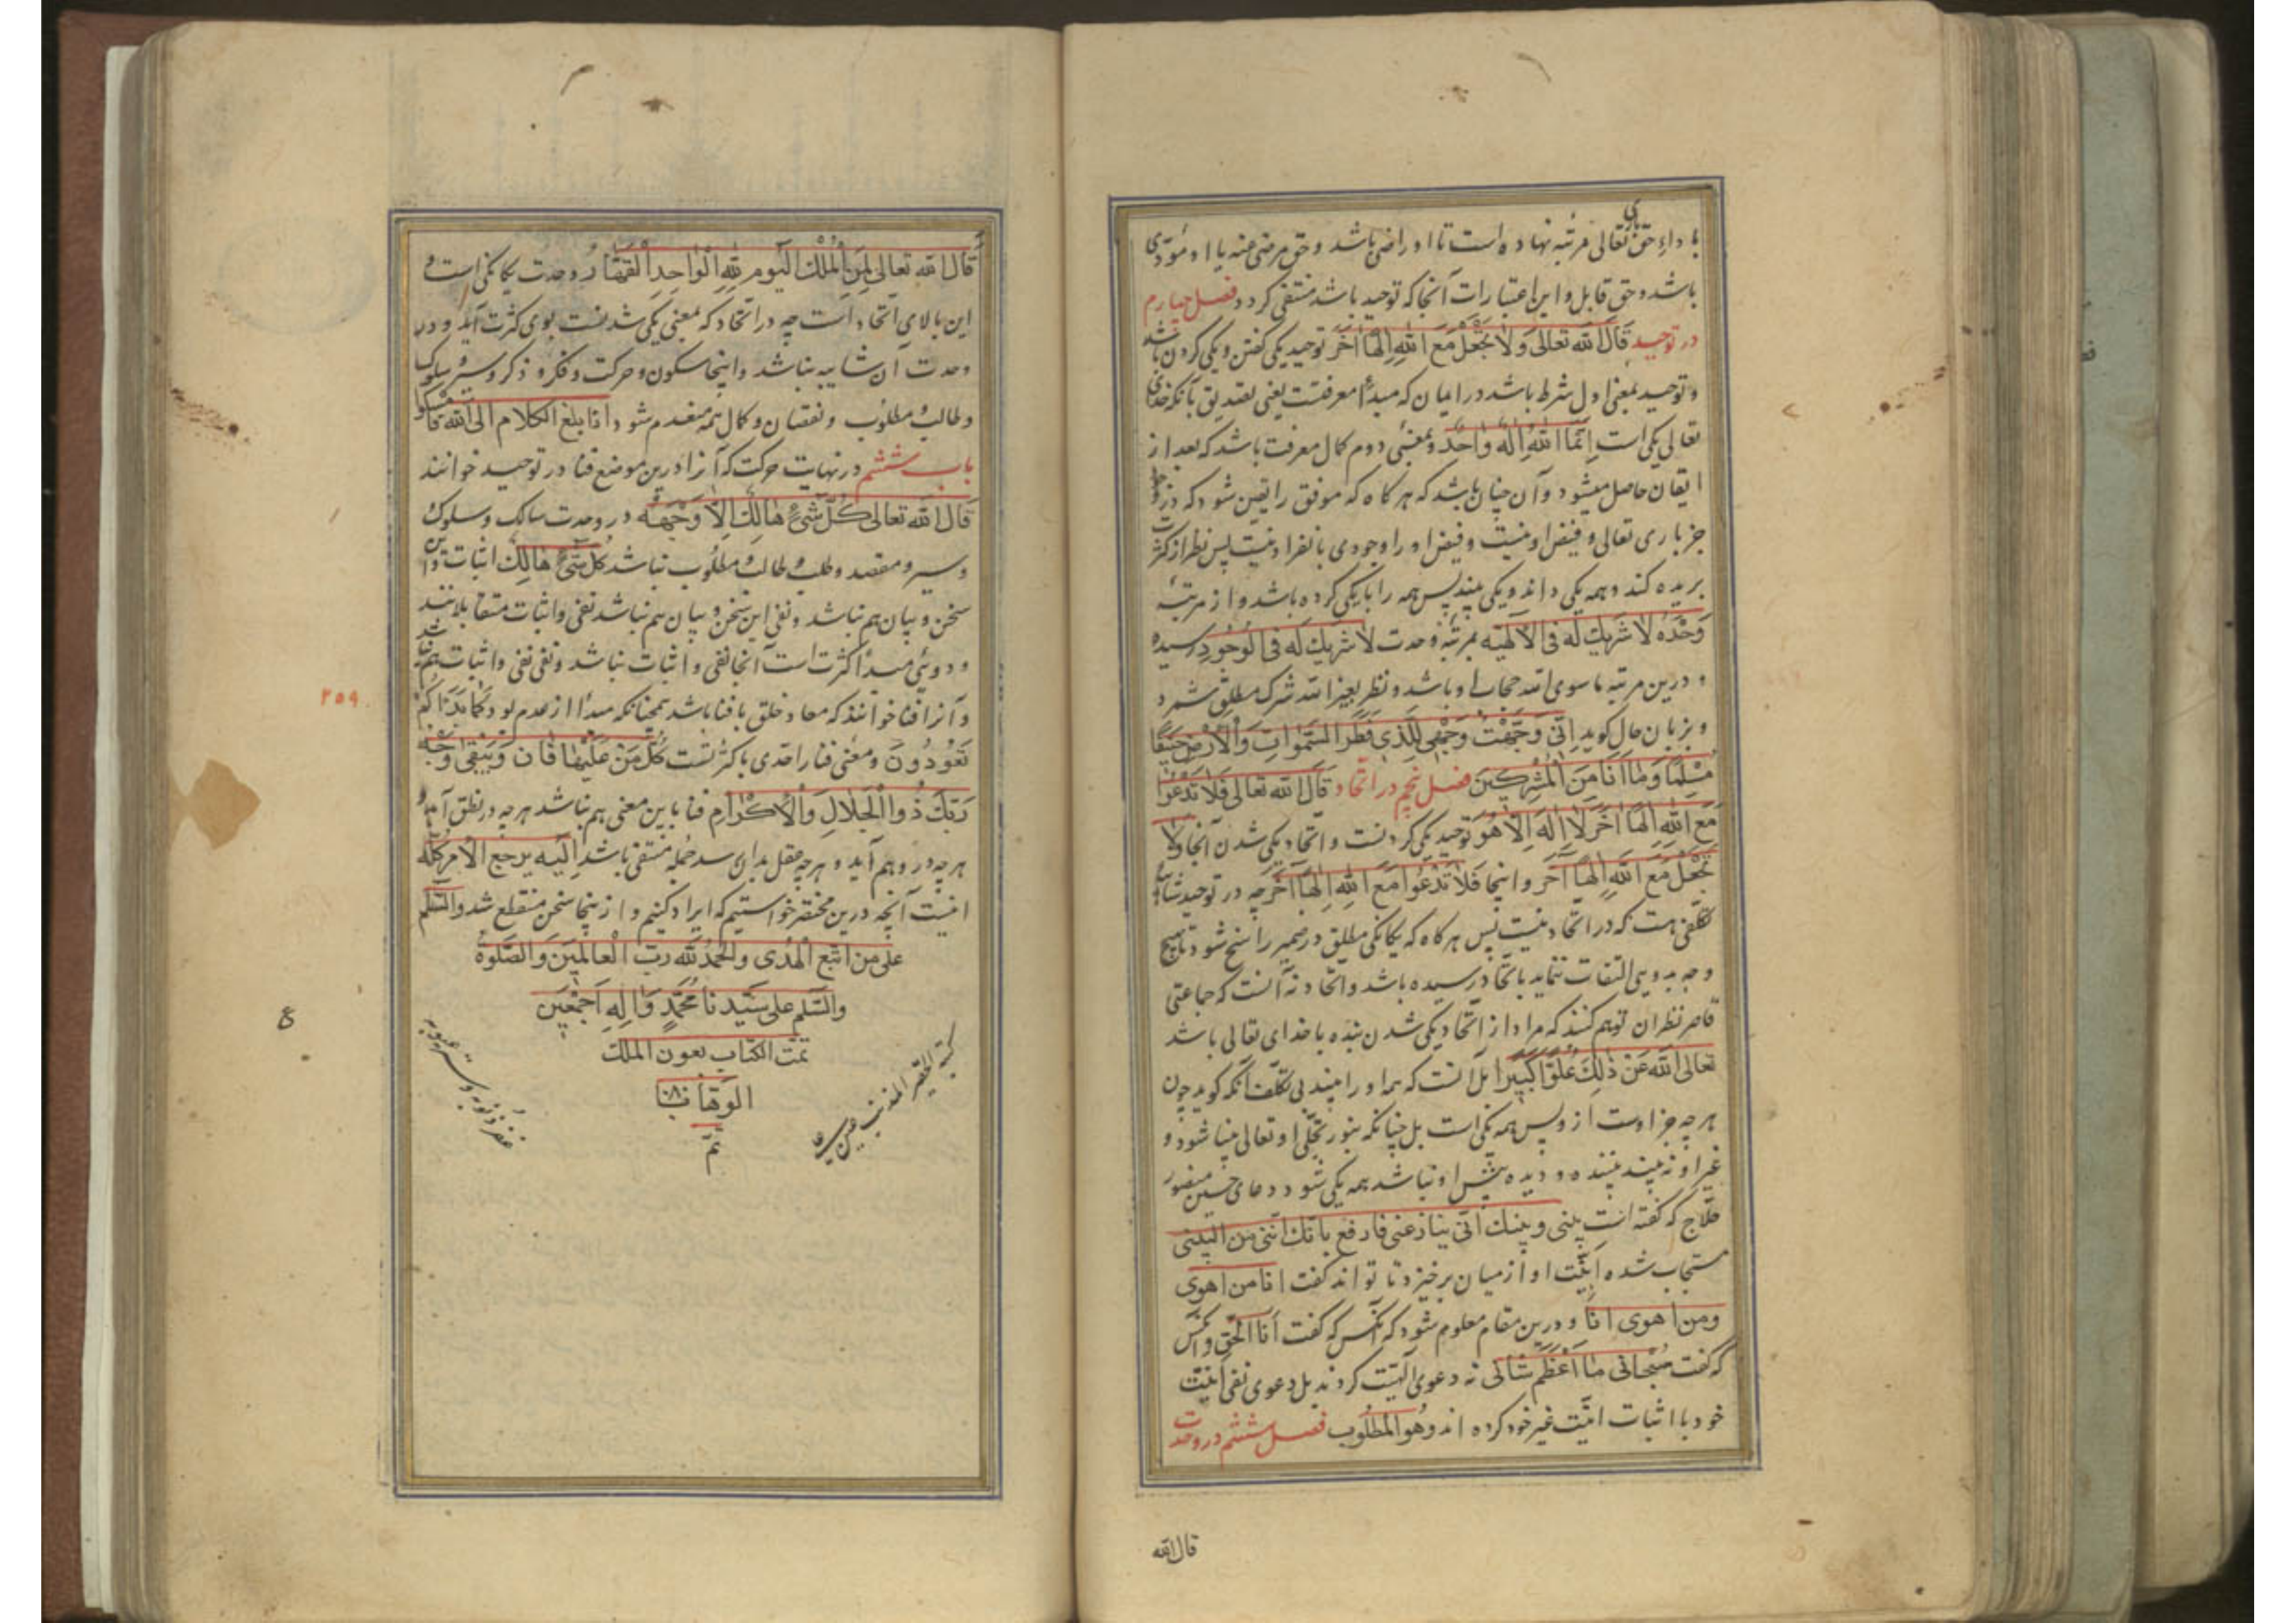 با داءِ حق تعالی مرتبه نهاده است تا او راضی باشد و حق مرضی عنه یا او مؤدی
باری
باشد و حق قابل و این اعتبارات آنجا که توحید باشد منتفی کردد فصل چهارم
در توحید قال الله تعالی وَلا تَجْعَلْ مَعَ اللهِ اِلٰهاً اٰخَرَ توحید یکی کفتن و یکی کردن باشد
و توحید بمعنی اول شرط باشد در ایمان که مبدأ معرفتست یعنی تصدیق بآنکه خدای
تعالی یکی است اِنَّمَا اللهُ اِلٰهٌ واحِدٌ و بمعنئ دوم کمال معرفت باشد که بعد از
ایقان حاصل میشود و آن چنان باشد که هر کاه که موفق را یقین شود که در وجود
جز باری تعالی و فیض او نیست و فیض او را وجودی بانفراد نیست پس نظر از کثرت
بریده کند و همه یکی داند و یکی بیند پس همه را با یکی کرده باشد و از مرتبهٔ
وَحْدَهُ لا شَریكَ لَه فی الاَلهیّه بمرتبهٔ وحدت لا شَریكَ لَه فی الوُجُودِ رسیده
و درین مرتبه ما سوی الله حجاب او باشد و نظر بغیر الله شرک مطلق شمرد
و بزبان حال کوید اِنّی وَجَّهْتُ وَجْهِیَ لِلَّذی فَطَرَ السَّمٰواتِ وَالْاَرْضَ حَنیفًا
مُسْلِمًا وَمٰا اَنَا مِنَ الْمُشْرِکینَ فصل پنجم در اتحاد قال الله تعالی فَلا تَدْعُوا
مَعَ اللهِ اِلٰهًا اٰخَرَ لا اِلٰهَ اِلاّ هُوَ توحید یکی کردنست و اتحاد یکی شدن آنجا وَلا
تَجْعَلْ مَعَ اللهِ اِلٰهاً اٰخَرَ و اینجا فَلا تَدْعُوا مَعَ اللهِ اِلٰهاً اٰخَرَ چه در توحید شائبهٔ
تکلفی هست که در اتحاد نیست پس هر کاه که یکانکی مطلق در ضمیر راسخ شود تا بهیچ
وجه بدویی التفات ننماید باتحاد رسیده باشد و اتحاد نه آنست که جماعتی
قاصر نظران توهم کنند که مراد از اتحاد یکی شدن بنده با خدای تعالی باشد
تعالی الله عَنْ ذٰلِكَ عُلُوًّا کَبیرًا بل آنست که همه او را بیند بی تکلف آنکه کوید چون
هر چه جز اوست از وپس همه یکی است بل چنانکه بنور تجلّی او تعالی بینا شود و
غیر او نه بیند بیننده و دیده بینش او نباشد همه یکی شود و دعای حسین منصور
حلاج که کفته است بینی و بینك انّی ینازعنی فارفع باَنّك اِنّی من البینی
مستجاب شده اِنیّت او از میان برخیزد تا تواند کفت انا من اهوی
ومن اهوی انا و درین مقام معلوم شود که آنکس که کفت اَنا الحَقّ و آنکس
که کفت سُبْحانی ما اَعْظَم شَأنی نه دعوی الهیّت کردند بل دعوی نفی انیّت
خود با اثبات انیّت غیر خود کرده اند وهُو المَطْلُوب فصل ششم در وحدت
قال الله
قال الله تعالی لِمَنِ الْمُلْكُ الْیَوم لِلّٰهِ الْواحِدِ الْقَهّارُ وحدت یکانکی است و
این بالای اتحاد است چه در اتحاد که بمعنی یکی شدنست بوی کثرت آید و در
وحدت آن شایبه نباشد و اینجا سکون و حرکت و فکر و ذکر و سیر و سلوک
و طالب و مطلوب و نقصان و کمال همه منعدم شود و اذا بلغ الکلام الی الله فامسکوا
باب ششم در نهایت حرکت که آنرا درین موضع فنا در توحید خوانند
قال الله تعالی کُلُّ شَیْءٍ هٰالِكٌ اِلاّ وَجْهَهُ در وحدت سالک و سلوک
و سیر و مقصد و طلب و طالب و مطلوب نباشد کُلُّ شَیْءٍ هٰالِكٌ اثبات این
سخن و بیان هم نباشد و نفی این سخن و بیان هم نباشد نفی و اثبات متقابلانند
و دویی مبدأ کثرت است آنجا نفی و اثبات نباشد و نفی نفی و اثبات هم نباشد
و آنرا فنا خوانند که معاد خلق با فنا باشد همچنانکه مبدأ از عدم بود کَمٰا بَدَاَکُمْ
تَعُودُونَ و معنی فنا را حدی با کثرتست کُلُّ مَنْ عَلَیْهٰا فٰانٍ وَیَبْقٰی وَجْهُ
رَبِّكَ ذُوالْجَلالِ وَالْاِکْرٰامِ فنا باین معنی هم نباشد هر چه در نطق آید و
هر چه در وهم آید و هر چه عقل بدان رسد جمله منتفی باشد اِلَیْهِ یرجع الاَمر کلّه
اینست آنچه درین مختصر خواستیم که ایراد کنیم و از ینجا سخن منقطع شد والسّلم
علی من اتبع الهُدی والحَمدُ لله ربّ العالَمینَ وَالصَّلوةُ
والسّلم علی سَیّدنا محمّدٍ وَاٰلِهِ اَجمَعین
تمّت الکتاب بعون الملك
الوهّاب
تمّ
کتبه الحقیر المذنب
غفر ذنوبه و ستر عیوبه
٢٥٩